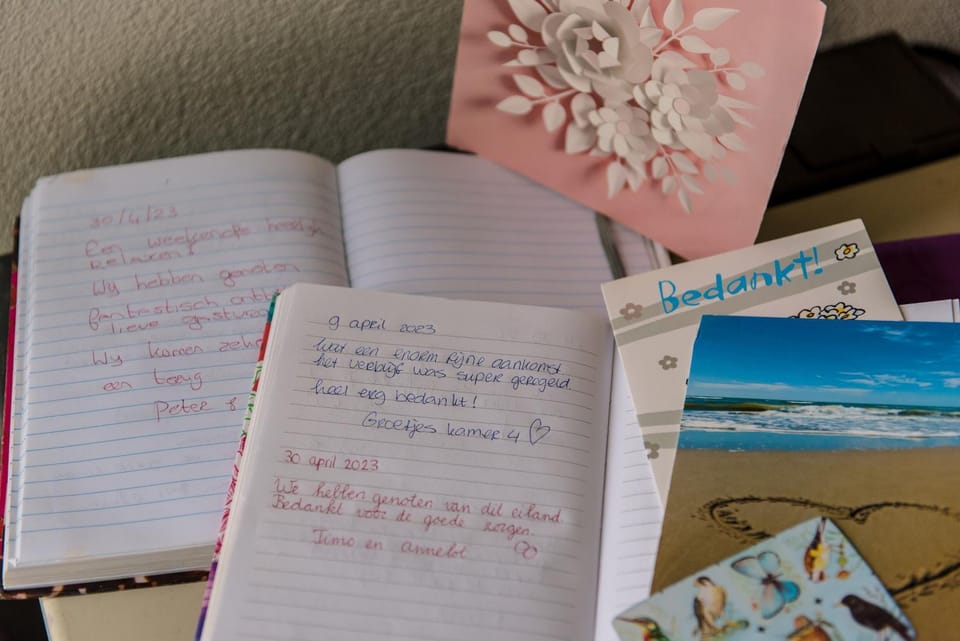 30/4/23
Een weekendje heerlijk
relaxen!
Wij hebben genoten
fantastisch
lieve
Wij komen
een terug
Peter &
9 april 2023
Wat een enorm fijne aankomst
het verblijf was super geregeld.
heel erg bedankt!
Groetjes kamer 4
30 april 2023
We hebben genoten van dit eiland.
Bedankt voor de goede zorgen.
Timo en annelot
Bedankt!